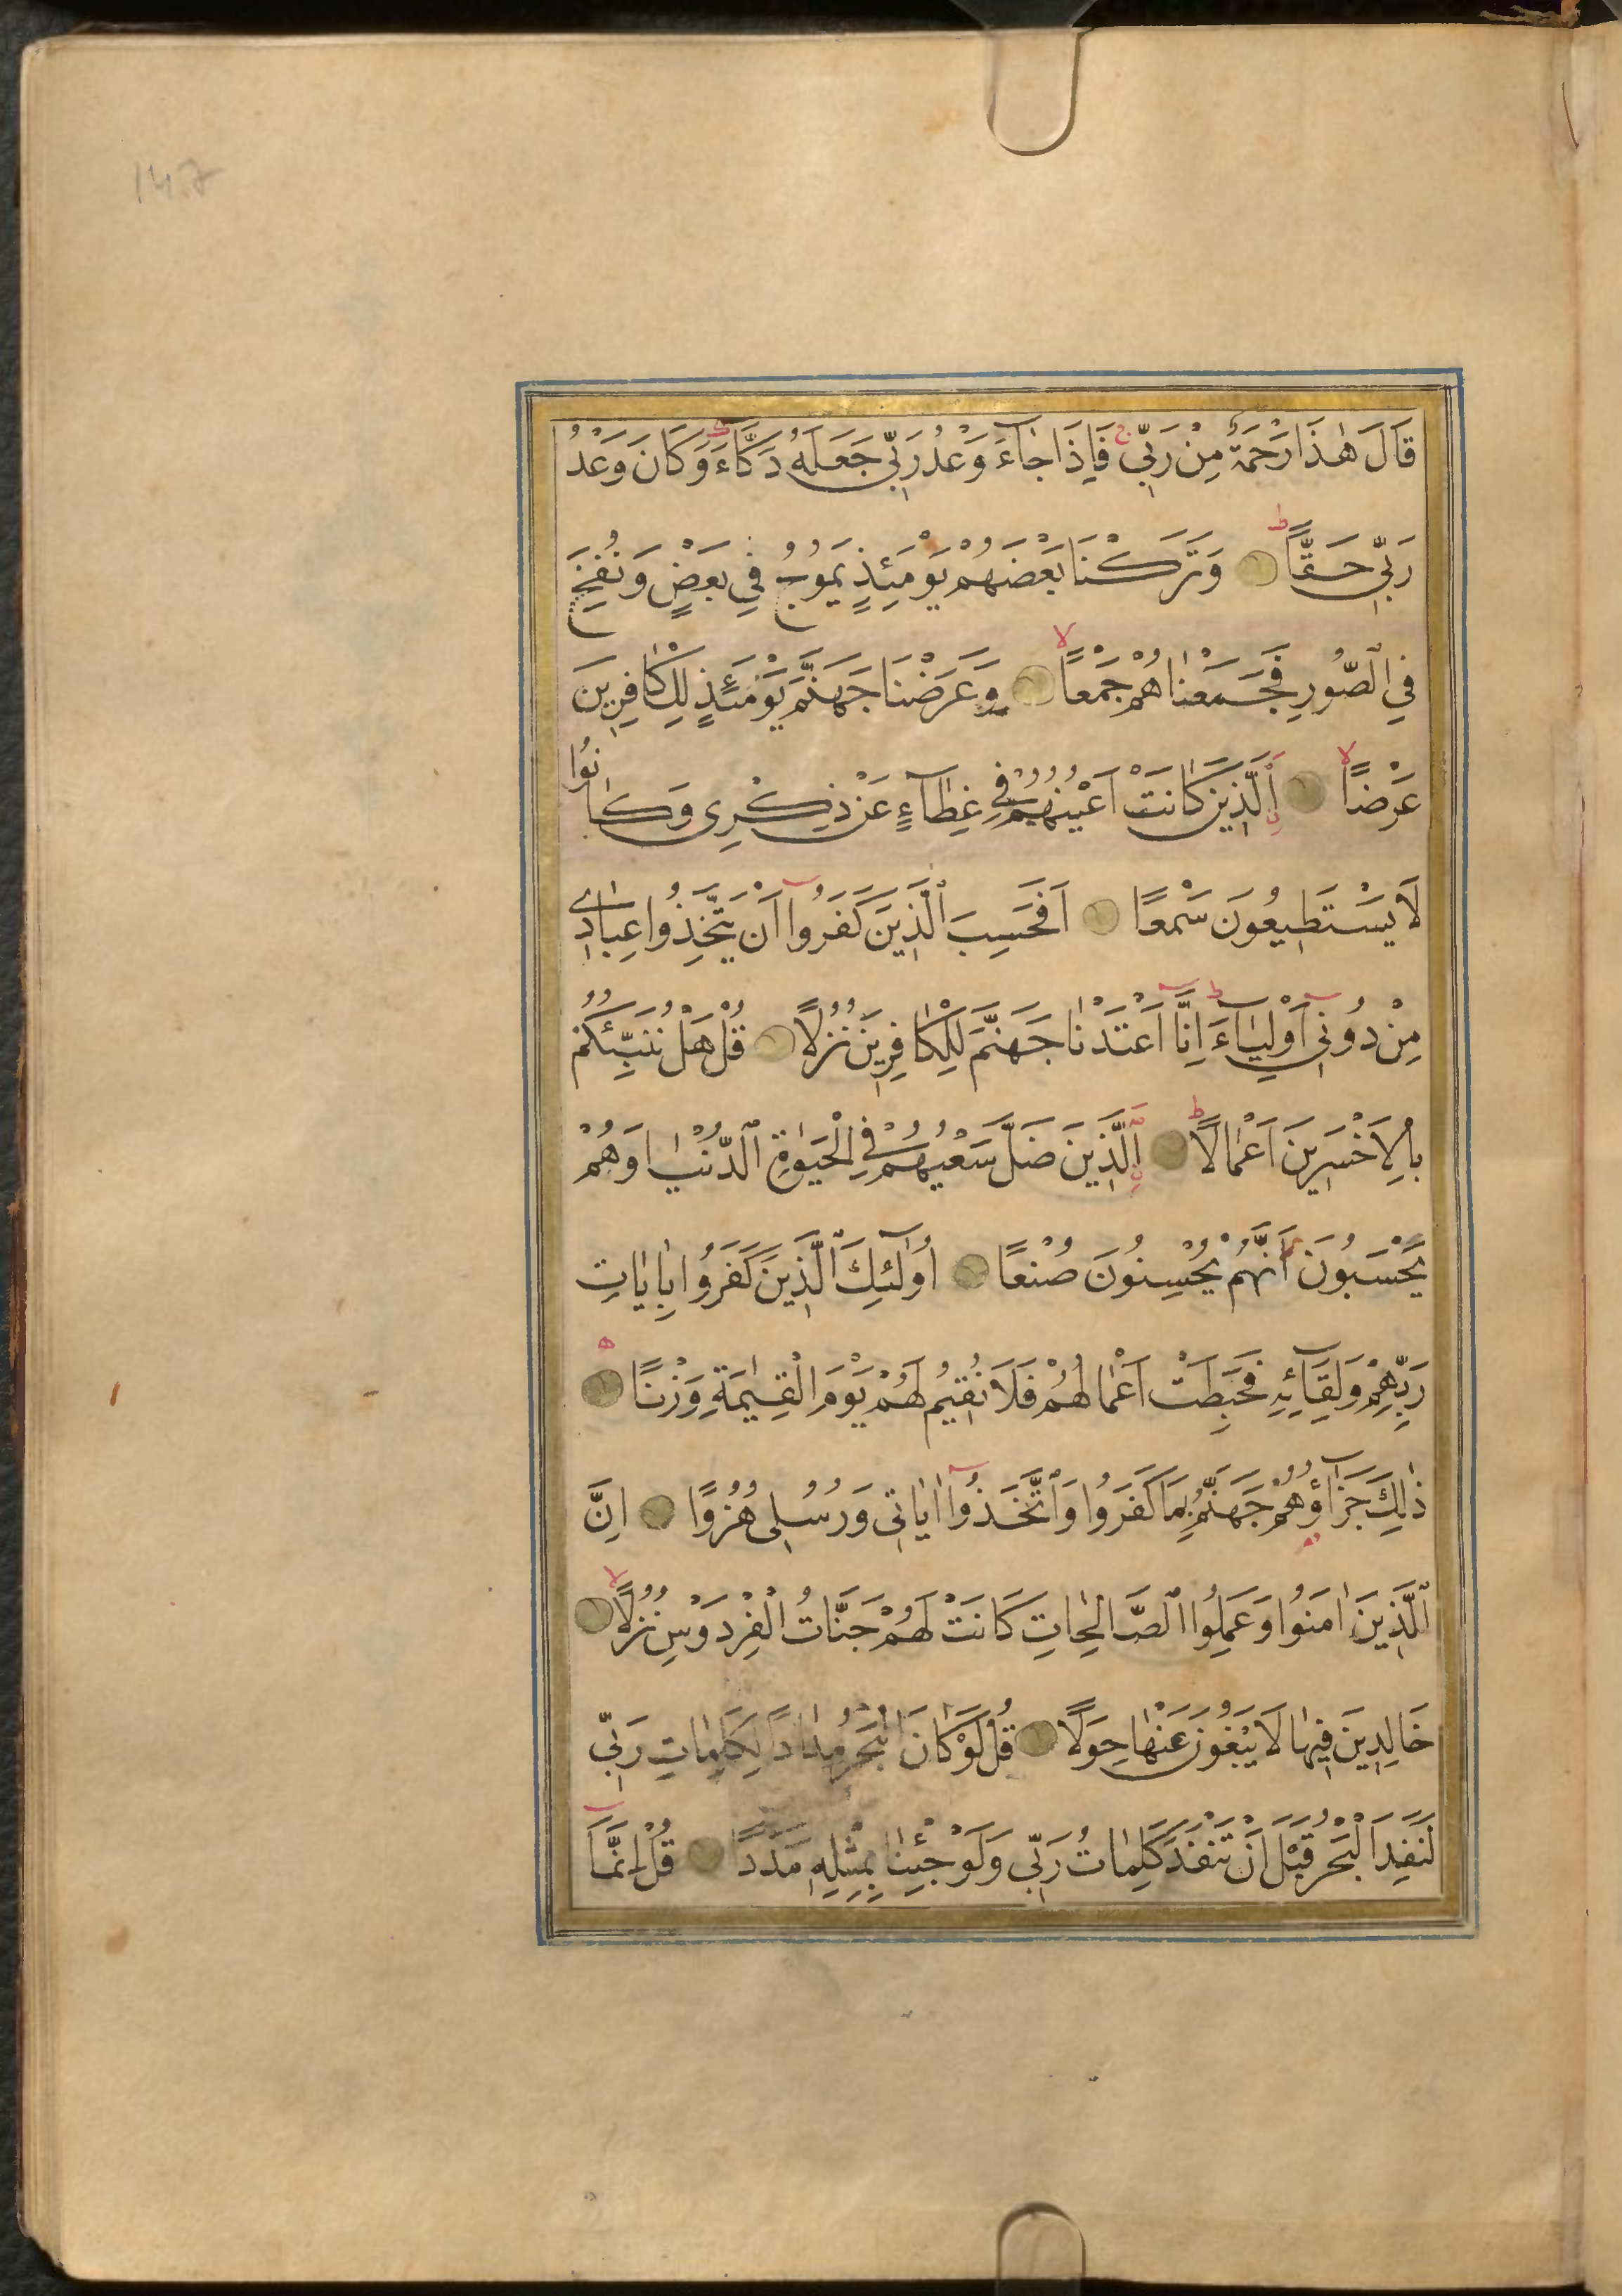 147
قَالَ هٰذَا رَحْمَةٌ مِنْ رَبِّي فَاِذَا جَآءَ وَعْدُ رَبِّي جَعَلَهُ دَكَّآءَ وَكَانَ وَعْدُ
رَبِّي حَقًّا وَتَرَكْنَا بَعْضَهُمْ يَوْمَئِذٍ يَمُوجُ فِي بَعْضٍ وَنُفِخَ
فِي ٱلصُّورِ فَجَمَعْنَاهُمْ جَمْعًا وَعَرَضْنَا جَهَنَّمَ يَوْمَئِذٍ لِلْكَافِرِينَ
عَرْضًا اَلَّذِينَ كَانَتْ اَعْيُنُهُمْ فِي غِطَآءٍ عَنْ ذِكْرِي وَكَانُوا
لَا يَسْتَطِيعُونَ سَمْعًا اَفَحَسِبَ ٱلَّذِينَ كَفَرُوآ اَنْ يَتَّخِذُوا عِبَادِي
مِنْ دُونِي اَوْلِيَآءَ اِنَّا اَعْتَدْنَا جَهَنَّمَ لِلْكَافِرِينَ نُزُلًا قُلْ هَلْ نُنَبِّئُكُمْ
بِالْاَخْسَرِينَ اَعْمَالًا اَلَّذِينَ ضَلَّ سَعْيُهُمْ فِي الْحَيٰوةِ ٱلدُّنْيَا وَهُمْ
يَحْسَبُونَ اَنَّهُمْ يُحْسِنُونَ صُنْعًا اُولٰٓئِكَ ٱلَّذِينَ كَفَرُوا بِاٰيَاتِ
رَبِّهِمْ وَلِقَآئِهِ فَحَبِطَتْ اَعْمَالُهُمْ فَلَا نُقِيمُ لَهُمْ يَوْمَ الْقِيٰمَةِ وَزْنًا
ذٰلِكَ جَزَآؤُهُمْ جَهَنَّمُ بِمَا كَفَرُوا وَٱتَّخَذُوآ اٰيَاتِي وَرُسُلِي هُزُوًا اِنَّ
ٱلَّذِينَ اٰمَنُوا وَعَمِلُوا ٱلصَّالِحَاتِ كَانَتْ لَهُمْ جَنَّاتُ الْفِرْدَوْسِ نُزُلًا
خَالِدِينَ فِيهَا لَا يَبْغُونَ عَنْهَا حِوَلًا قُلْ لَوْ كَانَ الْبَحْرُ مِدَادًا لِكَلِمَاتِ رَبِّي
لَنَفِدَ الْبَحْرُ قَبْلَ اَنْ تَنْفَدَ كَلِمَاتُ رَبِّي وَلَوْ جِئْنَا بِمِثْلِهِ مَدَدًا قُلْ اِنَّمَآ